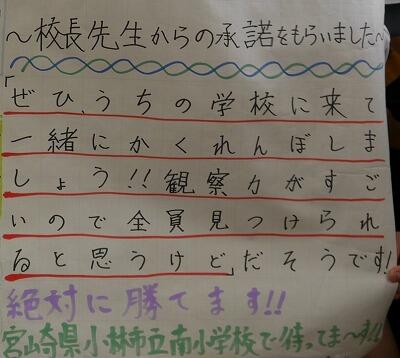 ～校長先生からの承諾をもらいました～
「ぜひ、うちの学校に来て
一緒にかくれんぼしま
しょう!!観察力がすご
いので全員見つけられ
ると思うけど」だそうです!
絶対に勝てます!!
宮崎県小林市立南小学校で待ってま～す!!